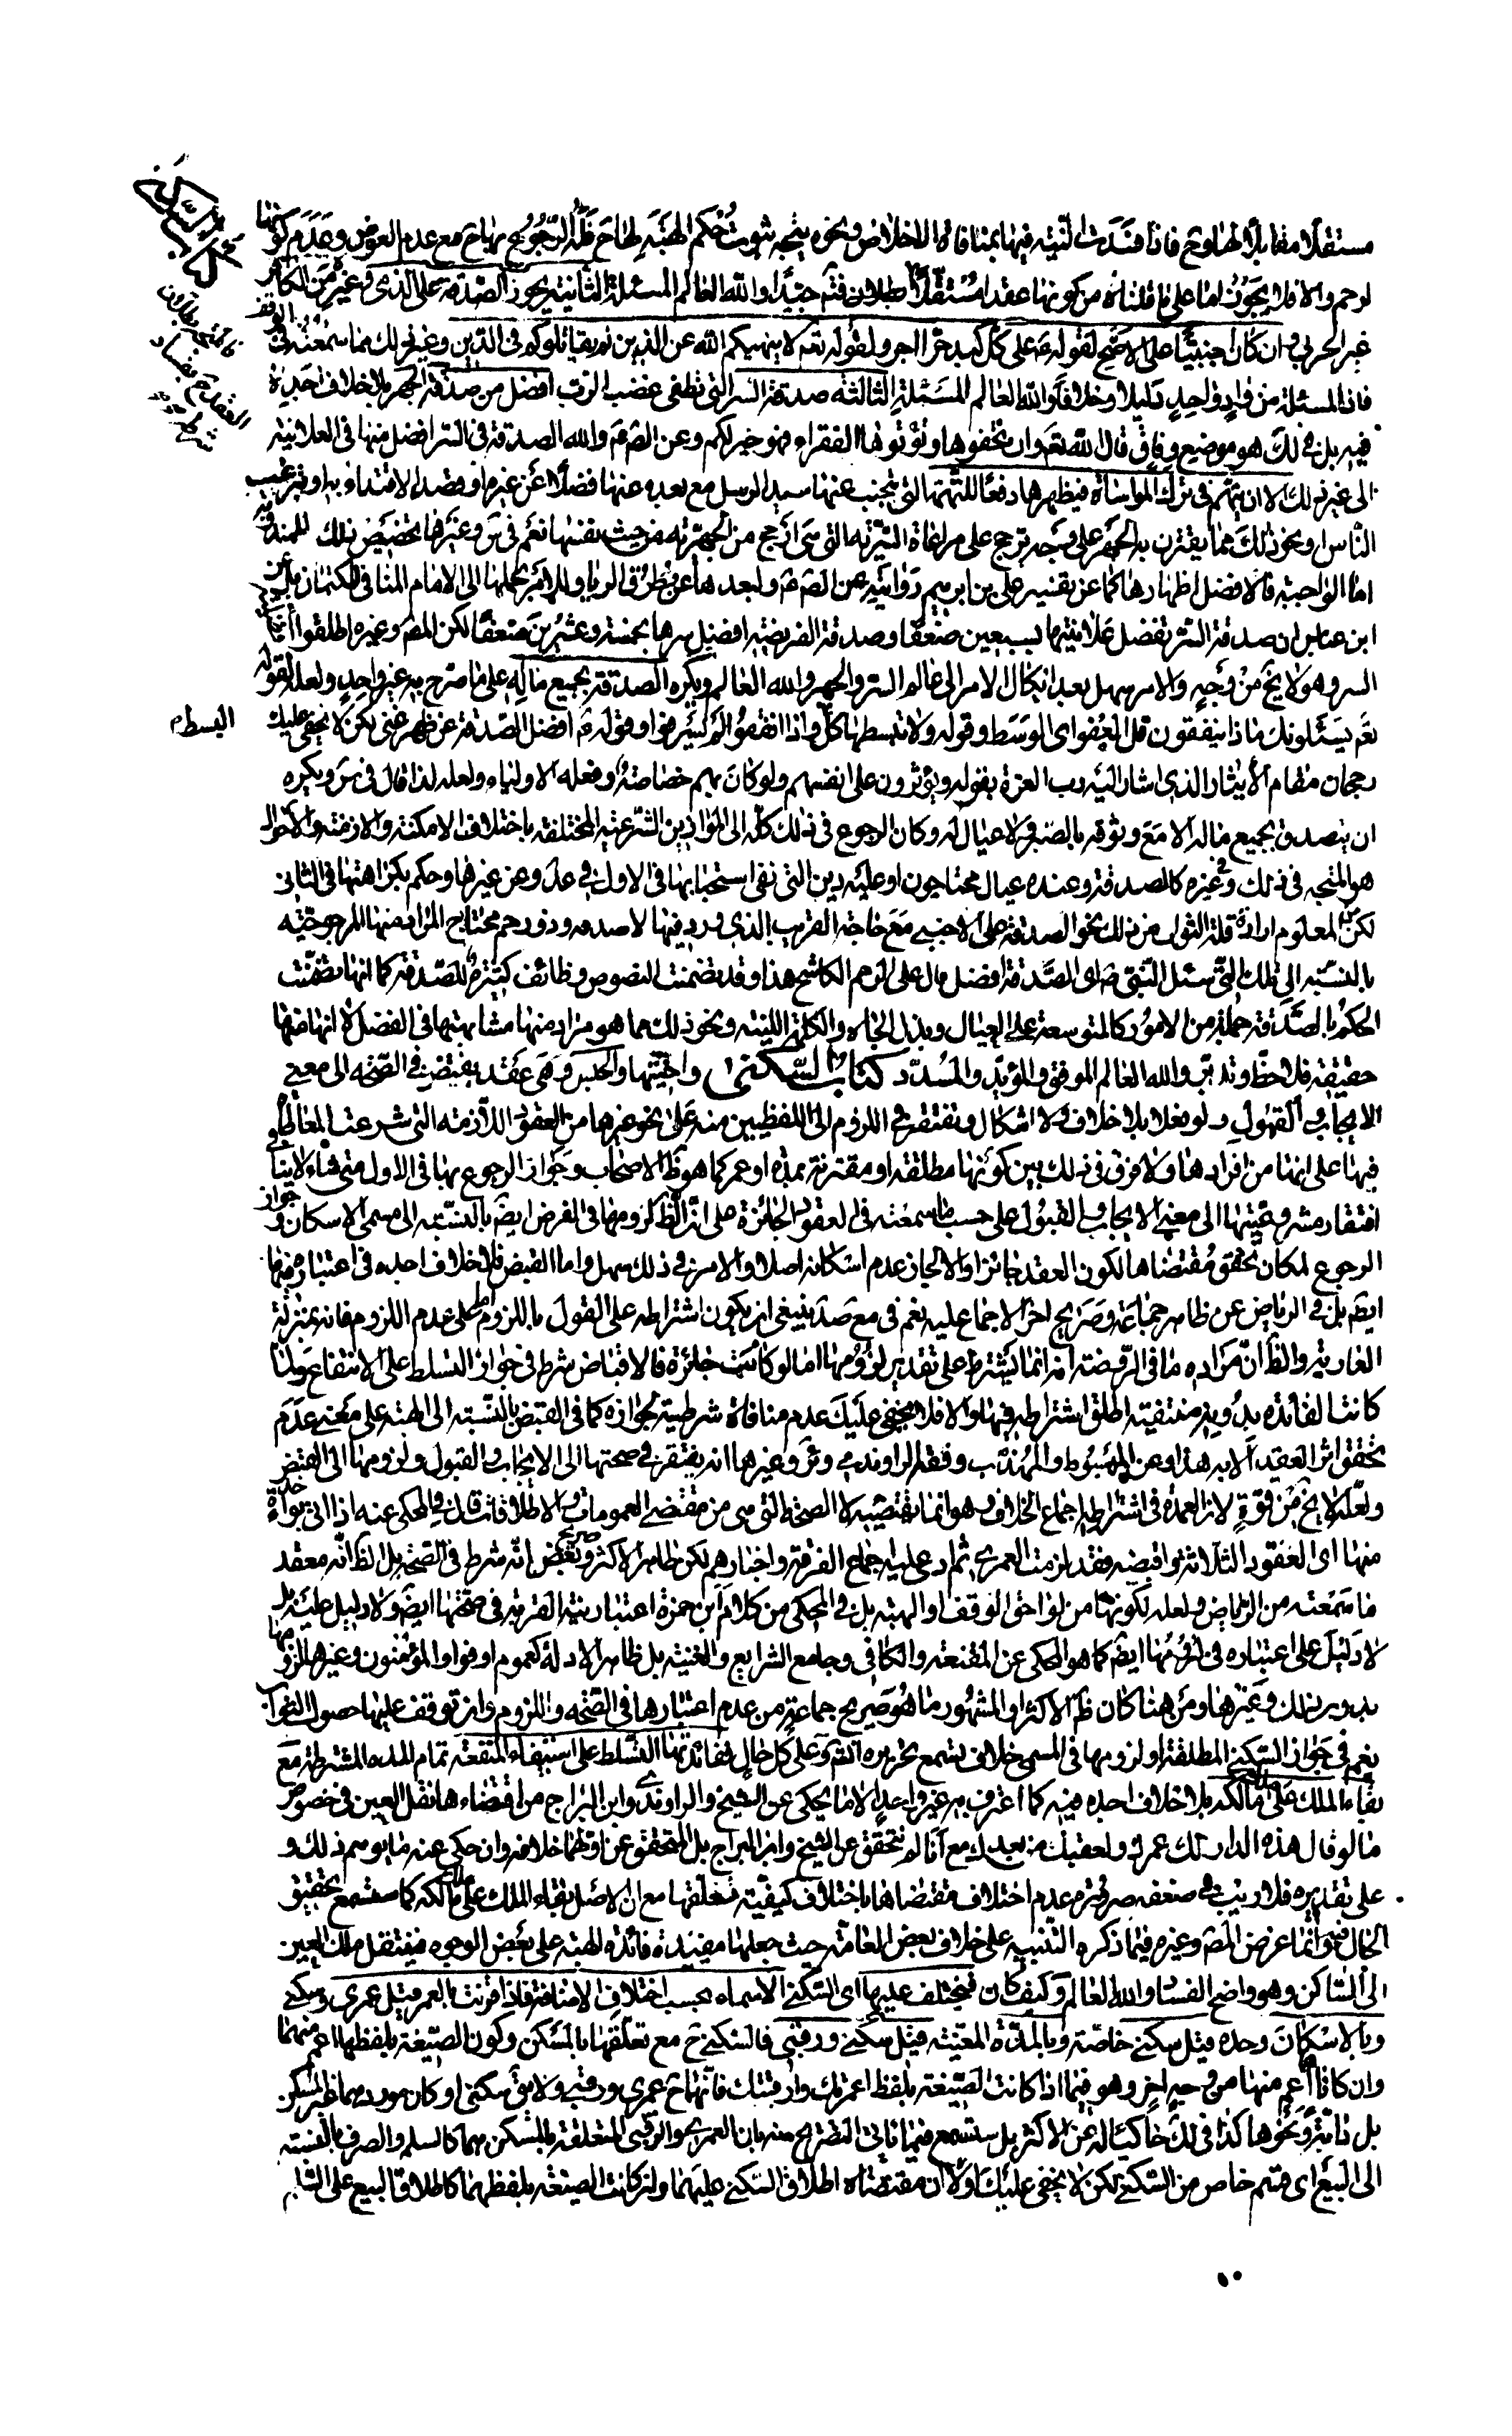 مستقلا مقابلا لها وح فاذا فسدت النيه فيها بمنافاة الاخلاص ونحوه يتجه ثبوت حكم الهبة لها ح فله الرجوع بها ح مع عدم العوض وعدم كونها
لرحم والا فلا يجوز اما على ما قلناه من كونها عقدا مستقلا بطلان فتم جيدا والله العالم المسئلة الثانية يجوز الصدقه على الذمي وغيره من الكافر
غير الحربي وان كان اجنبيا على الاصح لقوله ع على كل كبد حرا اجر ولقوله تعه لا ينهيكم الله عن الذين لم يقاتلوكم في الدين وغير ذلك مما سمعته في الوقف
فان المسئلة من واد واحد دليلا وخلافا والله العالم المسئلة الثالثه صدقة السر التي تطفى غضب الرب افضل من صدقة الجهر بلا خلاف اجده
فيه بل في ذلك هو موضع وفاق قال الله تعه وان تخفوها وتؤتوها الفقراء فهو خير لكم وعن الصم والله الصدقة في السر افضل منها في العلانيه
الى غير ذلك الا ان يتهم في ترك المواساة فيظهرها دفعا للتهمة التي يتجنب عنها سيد الرسل مع بعده عنها فضلا عن غيره او قصد الاقتداء به او ترغيب
الناس او نحو ذلك مما يقترن به الجهر على وجه ترجح على مراعاة السريه التي هي ارجح من الجهريه من حيث نفسها نعم في س وغيرها تخصيص ذلك للمندوبه
اما الواجبه فالافضل اظهارها كما عن تفسير علي بن ابرهيم روايته عن الصم ولبعدها عن تطرق الريا وللامر بحملها الى الامام المنافي للكتمان بل عن
ابن عباس ان صدقة السر تفضل علانيتها بسبعين ضعفا وصدقة الفريضه افضل سرها بخمسة وعشرين ضعفا لكن المصم وغيره اطلقوا
السر وهو لا يخ من وجه والامر سهل بعد ايكال الامر الى عالم السر والجهر والله العالم ويكره الصدقة بجميع ماله على ما صرح به غير واحد ولعله لقوله
تعه يسئلونك ماذا ينفقون قل العفو اى الوسط وقوله ولا تبسطها كل واذا انفقوا لم يسرفوا وقوله ص افضل الصدقة عن ظهر غنى لكن لا يخفى عليك
البسط م
رجحان مقام الايثار الذي اشار اليه رب العزة بقوله ويؤثرون على انفسهم ولو كان بهم خصاصة وفعله الاولياء ولعله لذا قال في س ويكره
ان يتصدق بجميع ماله الا مع وثوقه بالصبر ولا عيال له وكان الرجوع في ذلك كله الى الموازين الشرعيه المختلفه باختلاف الامكنة والازمنه والاحوال
هو المتجه في ذلك وفي غيره كالصدقة وعنده عيال محتاجون او عليه دين التي نفى استحبابها في الاول في عد وعن غيرها وحكم بكراهتها في الثاني
لكن المعلوم ارادة قلة الثواب من ذلك نحو الصدقة على الاجنبي مع حاجة القريب الذي ورد فيها لا صدقه وذو رحم محتاج المراد منها المرجوحيه
بالنسبه الى تلك التي سئل النبي ص اى الصدقة افضل قال على الرحم الكاشح هذا وقد تضمنت النصوص وظائف كثيرة للصدقة كما انها تضمنت
الحكم بالصدقة جملة من الامور كالتوسعة على العيال وبذل الجاه والكلمة اللينه ونحو ذلك مما هو مراد منها مشابهتها في الفضل لا انها منها
حقيقة فلاحظ وتدبر والله العالم الموفق والمؤيد والمسدد كتاب السكنى واجنيتها والحبس وهي عقد يفتقر في الصحه الى معنى
الايجاب والقبول ولو فعلا بلا خلاف ولا اشكال وتفتقر في اللزوم الى اللفظيين منه على نحو غيرها من العقود اللازمه التي شرعت المعاطاة
فيها على انها من افرادها ولا فرق في ذلك بين كونها مطلقه او مقترنة بمدة او عمر كما هو ظ الاصحاب وجواز الرجوع بها في الاول متى شاء لا ينافي
افتقار مشروعيتها الى معنى الايجاب والقبول على حسب ما سمعته في العقود الجائزة على ان الظ لزومها في الفرض ايضم بالنسبه الى مسمى الاسكان وجواز
الرجوع لمكان تحقق مقتضاها لكون العقد جائزا والا لجاز عدم اسكانه اصلا والامر في ذلك سهل واما القبض فلا خلاف اجده في اعتباره فيها
ايضم بل في الرياض عن ظاهر جماعة وصريح اخر الاجماع عليه نعم في مع صد ينبغي ان يكون اشتراطه على القول باللزوم اما على عدم اللزوم فانه بمنزلة
العاريه والظ ان مراده ما في الروضة انه انما يشترط على تقدير لزومها اما لو كانت جائزة فالاقباض شرط في جواز التسلط على الانتفاع ولما
كانت الفائده بدونه منتفيه اطلق اشتراطه فيها والا فلا يخفى عليك عدم منافاة شرطيته لجوازه كما في القبض بالنسبه الى الهبة على معنى عدم
تحقق اثر العقد الا به هذا وعن المبسوط والمهذب وفقه الراوندي وئر وغيرها انه يفتقر في صحتها الى الايجاب والقبول ولزومها الى القبض
ولعله لا يخ من قوة لان العمدة في اشتراطه اجماع الخلاف وهو انما يقتضيه لا الصحة التي هي من مقتضى العمومات والاطلاقات قال في المحكى عنه اذا اتى بواحدة
منها اى العقود الثلاثة واقبضه فقد لزمت العمرى ثم ادعى عليه اجماع الفرقة واخبارهم لكن ظاهر الاكثر وصريح بعض انه شرط في الصحه بل الظ انه معقد
ما سمعته من الرياض ولعله لكونها من لواحق الوقف او الهبه بل في المحكى من كلام ابن حمزة اعتبار نية القربه في صحتها ايضم ولا دليل عليه بل
لا دليل على اعتباره في لزومها ايضم كما هو المحكى عن المقنعه والكافى وجامع الشرايع والغنيه بل ظاهر الادلة كعموم اوفوا والمؤمنون وغيرهما لزومها
بدون ذلك وغيرها ومن هنا كان ظ الاكثر او المشهور ما هو صريح جماعة من عدم اعتبارها في الصحه واللزوم وان توقف عليها حصول الثواب
نعم في جواز السكنى المطلقة او لزومها في المسمى خلاف تسمع تحريره انشم وعلى كل حال ففائدتها التسلط على استيفاء المنفعه تمام المده المشترطة مع
بقاء الملك على مالكه بلا خلاف اجده فيه كما اعترف به غير واحد الا ما يحكى عن الشيخ والراوندي وابن البراج من اقتضاءها نقل العين في خصوص
ما لو قال هذه الدار لك عمرك ولعقبك من بعدك مع انا لم نتحقق عن الشيخ وابن البراج بل المتحقق عن اولهما خلافه وان حكى عنه ما يوهم ذلك و
على تقديره فلا ريب في ضعفه ضرورة عدم اختلاف مقتضاها باختلاف كيفية متعلقها مع ان الاصل بقاء الملك على مالكه كما ستسمع تحقيق
الحال فيه وانما غرض المصم وغيره فيما ذكره التنبيه على خلاف بعض العامة حيث جعلها مفيدة فائدة الهبه على بعض الوجوه فينتقل ملك العين
الى الساكن وهو واضح الفساد والله العالم وكيف كان فيختلف عليها اى السكنى الاسماء بحسب اختلاف الاضافة فاذا قرنت بالعمر قيل عمرى وسكنى
وبالاسكان وحده قيل سكنى خاصة وبالمدة المعينه قيل سكنى ورقبى فالسكنى ح مع تعلقها بالمسكن وكون الصيغة بلفظها اعم منهما
وان كانا اعم منها من وجه اخر وهو فيما اذا كانت الصيغة بلفظ اعمرتك وارقبتك فانها ح عمرى ورقبى ولا يق سكنى او كان موردهما غير المسكن
بل دابة ونحوها كذا في لك حاكيا له عن الاكثر بل ستسمع فيما ياتي التصريح منه بان العمرى والرقبى المتعلقة بالمسكن هما كالسلم والصرف بالنسبه
الى البيع اى قسم خاص من السكنى لكن لا يخفى عليك اولا ان مقتضاه اطلاق السكنى عليهما وان كانت الصيغه بلفظهما كاطلاق البيع على السلم